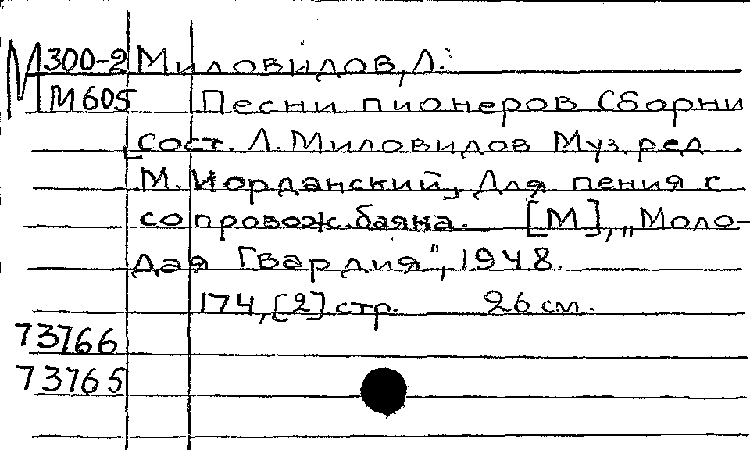 М 300-2 Миловидов, Л.
М605 Песни пионеров Сборни
[сост. Л. Миловидов Муз. ред
М. Иорданский, Для пения с
сопровож. баяна. [М], „Моло-
дая Гвардия", 1948.
174, [2] стр. 26 см.
73766
73765